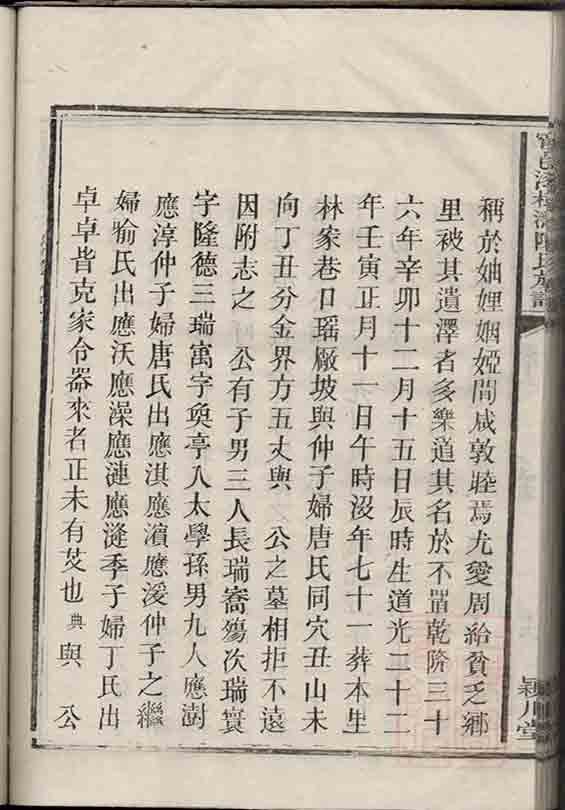 稱於妯娌姻婭間咸敦睦焉尤愛周給貧乏鄉
里被其遺澤者多樂道其名於不置乾隆三十
六年辛卯十二月十五日辰時生道光二十二
年壬寅正月十一日午時沒年七十一葬本里
林家巷口瑶廠坡與仲子婦唐氏同穴丑山未
向丁丑分金界方五丈與 公之墓相拒不遠
因附志之 公有子男三人長瑞喬殤次瑞寰
字隆德三瑞寓字奐亭入太學孫男九人應澍
應淳仲子婦唐氏出應淇應濱應湲仲子之繼
婦喻氏出應沃應澡應漣應漨季子婦丁氏出
卓卓皆克家令器來者正未有艾也典與 公
陳氏族譜
潁川堂